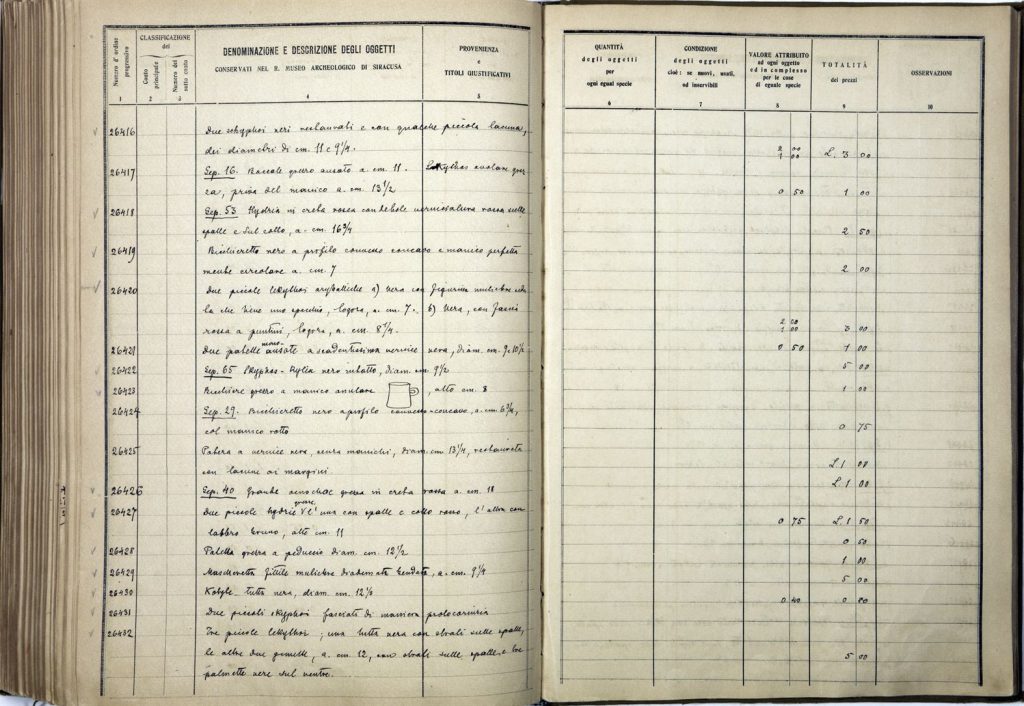 Numero d'ordine progressivo
CLASSIFICAZIONE del
Conto principale
Numero del sotto conto
DENOMINAZIONE E DESCRIZIONE DEGLI OGGETTI
CONSERVATI NEL R. MUSEO ARCHEOLOGICO DI SIRACUSA
PROVENIENZA
e
TITOLI GIUSTIFICATIVI
1 2 3 4 5
26416 Due skyphoi neri restaurati e con qualche piccola lacuna,
dei diametri di cm. 11 e 9 1/2.
26417 Sep. 16. Boccale grezzo ansato a. cm. 11. Lekythos grez
za, priva del manico a. cm. 13 1/2
26418 Sep. 53 Hydria in creta rossa con debole verniciatura rossa sulle
spalle e sul collo, a. cm. 16 3/4
26419 Bicchieretto nero a profilo convesso concavo e manico perfetta
mente circolare a. cm. 7
26420 Due piccole lekythoi aryballiche a) nera con figurina muliebre
la che tiene uno specchio, logora, a. cm. 7. b) nera, con fascia
rossa a puntini, logora, a. cm. 8 1/4.
26421 Due patelle mono ansate a scadentissima vernice nera, diam. cm. 9 e 10 1/2
26422 Sep. 65 Skyphos-kylix nero diam. cm. 9 1/2
26423 Bicchiere grezzo a manico anulare , alto cm. 8
26424 Sep. 29. Bicchieretto nero a profilo convesso-concavo, a. cm. 6 3/4,
col manico rotto
26425 Patera a vernice nera, senza manichi, diam. cm 13 1/4, restaurata
con lacune ai margini
26426 Sep. 40 Grande oenochoe grezza in creta rossa a. cm. 18
26427 Due piccole hydrie grezze l'una con spalle e collo rosso, l'altra con
labbro bruno, alte cm. 11
26428 Patella grezza a peduccio diam. cm. 12 1/2
26429 Mascheretta fittile muliebre diademata a. cm. 9 1/4
26430 Kotyle tutta nera, diam. cm. 12 1/2
26431 Due piccoli skyphoi fasciati di maniera protocorinzia
26432 Tre piccole lekythoi; una tutta nera con strati sulle spalle,
le altre due gemelle, a. cm. 12, con strati sulle spalle e tre
palmette nere sul ventre.
QUANTITÀ
degli oggetti
per
ogni egual specie
CONDIZIONE
degli oggetti
cioè: se nuovi, usati,
od inservibili
VALORE ATTRIBUITO
ad ogni oggetto
ed in complesso
per le cose
di eguale specie
TOTALITÀ
dei prezzi
OSSERVAZIONI
6 7 8 9 10
2 00
1 00 L. 3 00
0 50 1 00
2 50
2 00
2 00
1 00 3 00
0 50 1 00
5 00
1 00
0 75
L. 1 00
L. 1 00
0 75 L. 1 50
0 50
1 00
5 00
0 40 0 80
5 00